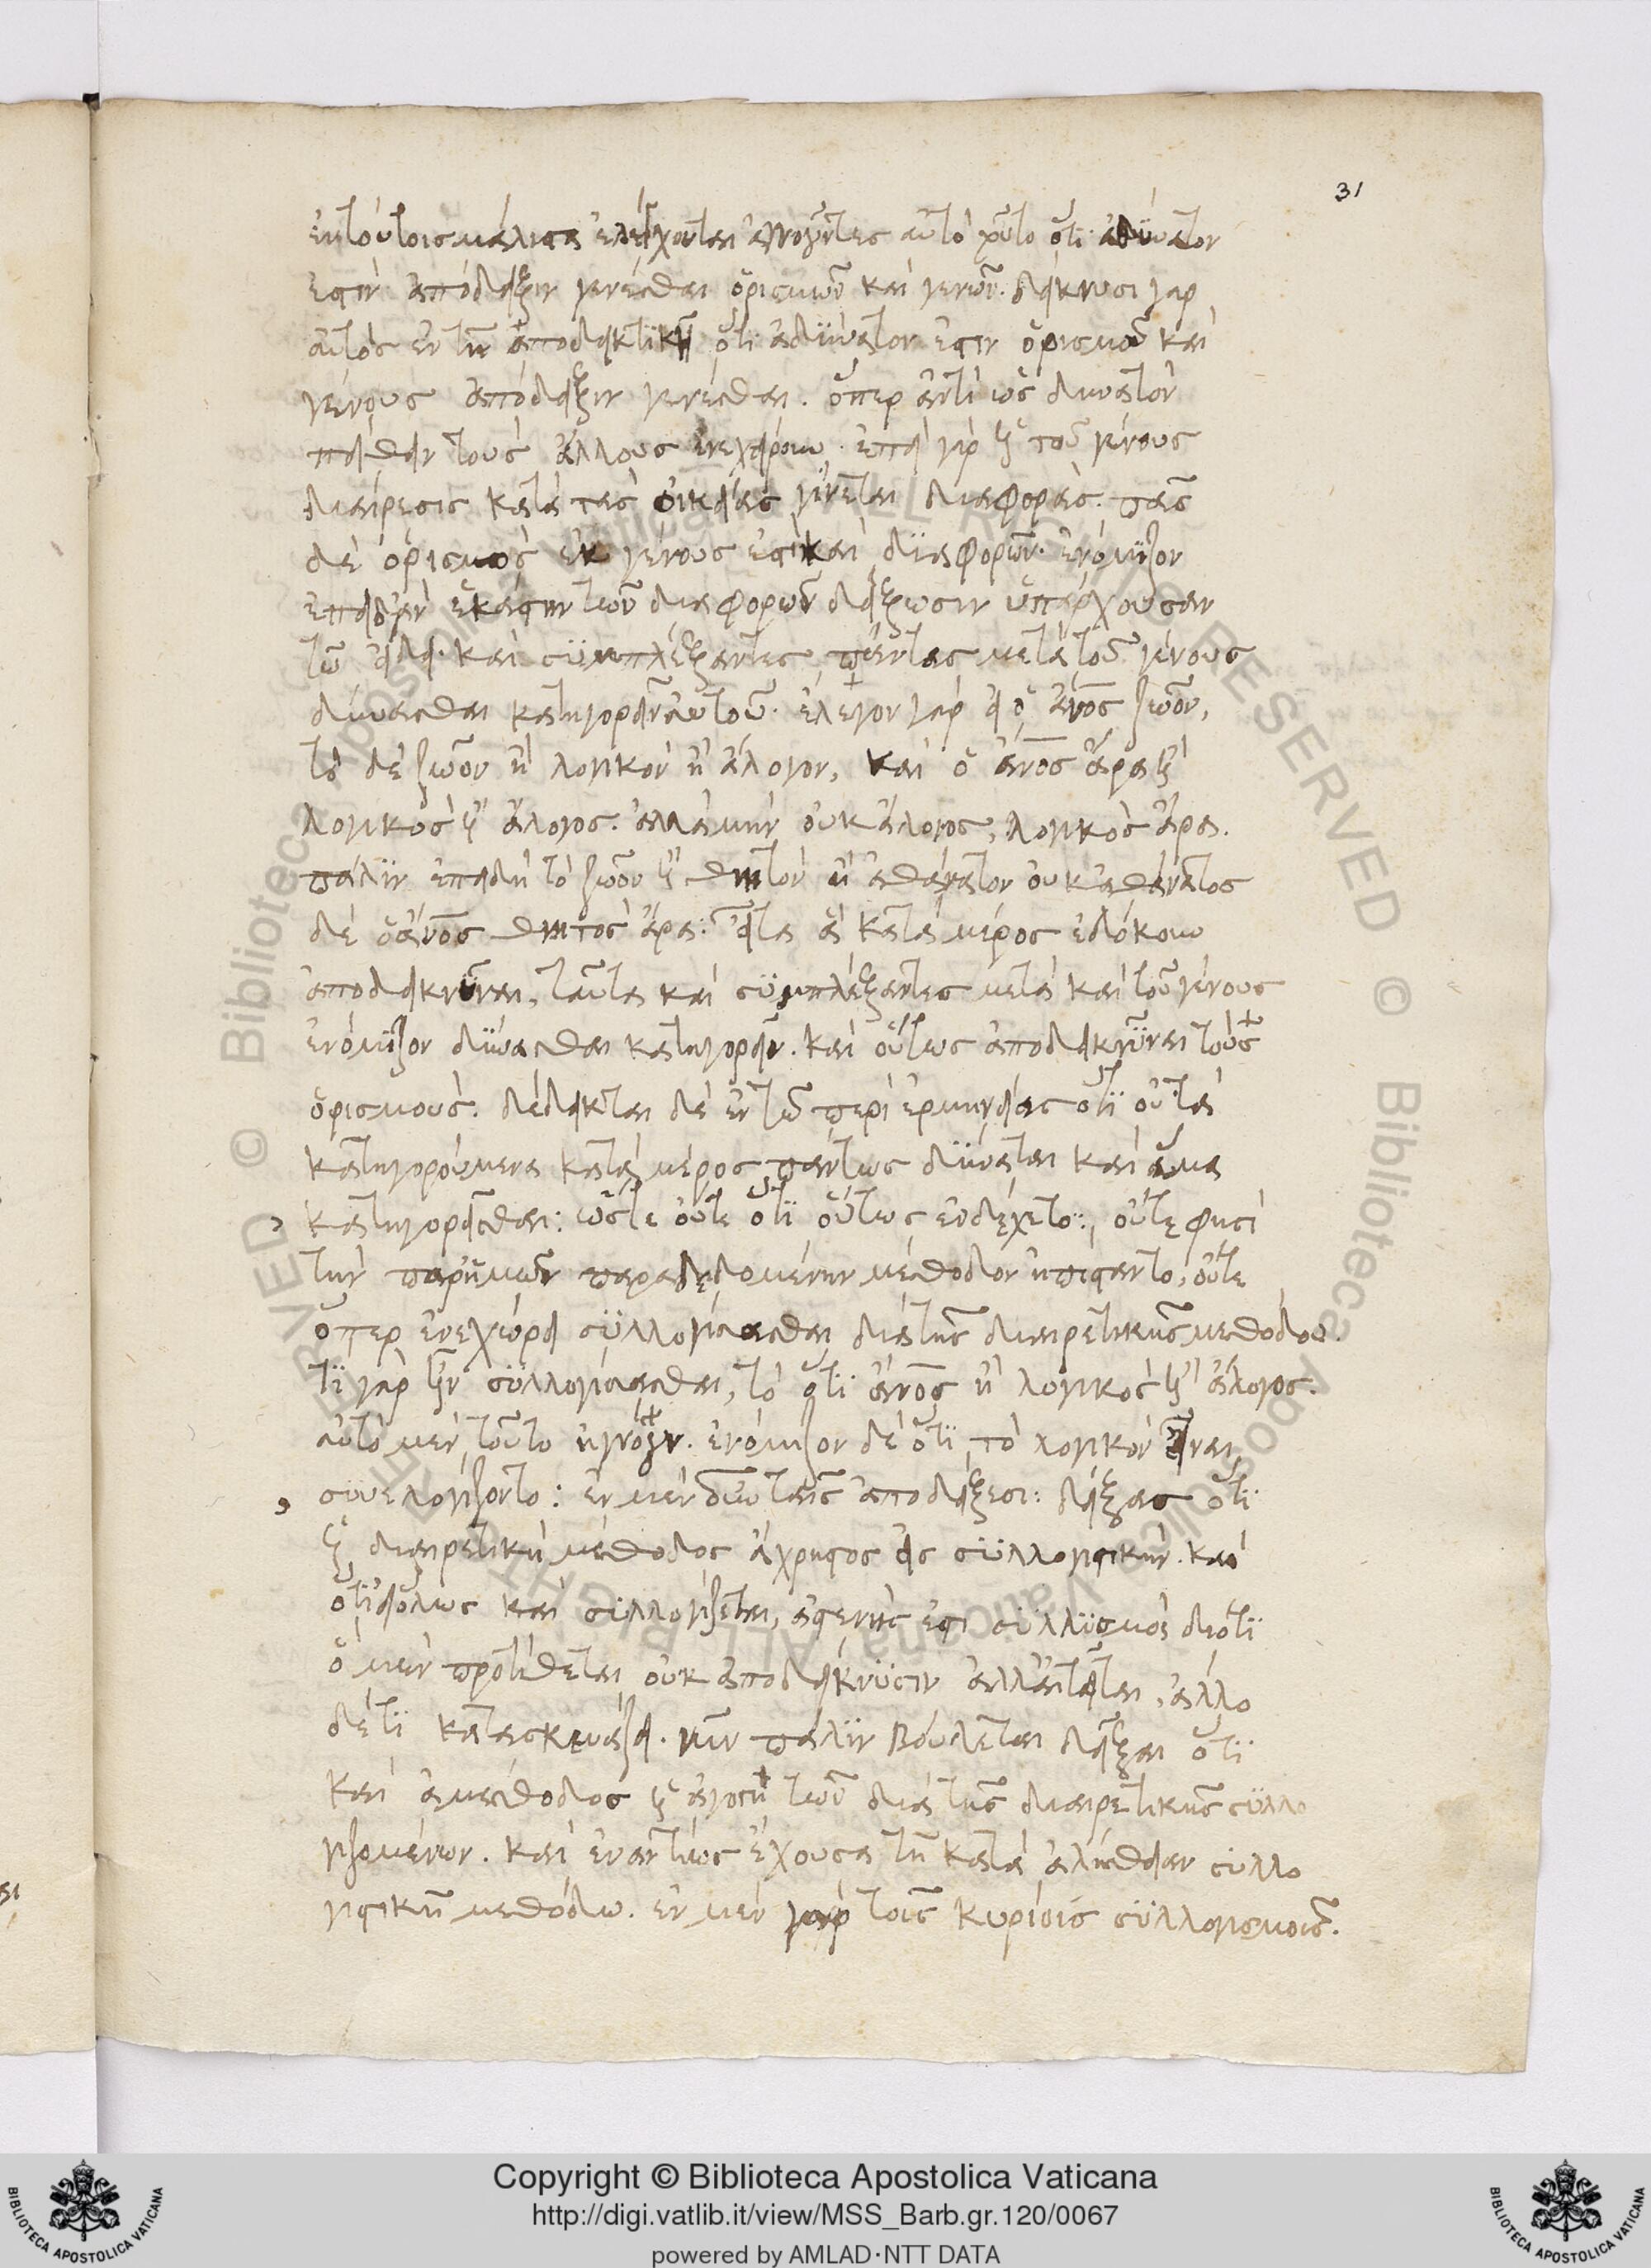 31
ἐν τούτοις μάλιστα ἐλέγχονται ἀγνοοῦντες αὐτὸ τοῦτο ὅτι ἀδύνατον
ἐστὶν ἀπόδειξιν γενέσθαι ὁρισμῶν καὶ γενῶν. δείκνυσι γαρ
αὐτὸς ἐν τῆ ἀποδεικτικῆ ὅτι ἀδύνατον ἐστιν ὁρισμοῦ καὶ
γένους ἀπόδειξιν γενέσθαι. ὅπερ ἀντὶ ὡς δυνατὸν
πείθειν τοὺς ἄλλους ἐνεχείρουν. ἐπεὶ γὰρ ἡ τοῦ γένους
διαίρεσις κατὰ τας οἰκείας γίνεται διαφορας. πᾶς
δὲ ὁρισμὸς ἐκ γένους ἐστὶ καὶ διαφορῶν. ἐνόμιζον
ἐπειδὰν ἑκάστην τῶν διαφορῶν δείξωσιν ὑπάρχουσαν
τῶ εἴδει. καὶ συμπλέξαντες πάντας μετὰ τοῦ γένους
δύνασθαι κατηγορεῖν αὐτοῦ. ἔλεγον γὰρ εἰ ὁ ἄνος ζῶον,
τὸ δὲ ζῶον ἢ λογικὸν ἢ ἄλογον, καὶ ὁ ἄνος ἄρα ἢ
λογικὸς ἢ ἄλογος. ἀλλὰ μὴν οὐκ ἄλογος, λογικὸς ἄρα.
πάλιν ἐπειδὴ τὸ ζῶον ἢ θνητὸν ἢ ἀθάνατον οὐκ ἀθάνατος
δὲ ὁ ἄνος θνητὸς ἄρα: εἶτα ἃ κατὰ μέρος ἐδόκουν
ἀποδεικνῦναι, ταῦτα καὶ συμπλέξαντες μετὰ καὶ τοῦ γένους
ἐνόμιζον δύνασθαι κατηγορεῖν. καὶ οὕτως ἀποδεικνῦναι τοὺς
ὁρισμούς. δέδεικται δὲ ἐν τῶ περὶ ἑρμηνείας ὅτι οὐ τὰ
κατηγορούμενα κατὰ μέρος πάντως δύναται καὶ ἅμα
κατηγορεῖσθαι: ὥστε οὔτε ὅτι οὕτως ἐνδέχεται:, οὔτε φησὶ
τὴν παρ' ἡμῶν παραδεδομένην μέθοδον ἠπίσταντο, οὔτε
ὅπερ ἐνεχώρει συλλογίσασθαι διὰ τῆς διαιρετικῆς μεθόδου.
τί γὰρ ἦν συλλογίσασθαι, τὸ ὅτι ἄνος ἢ λογικὸς ἢ ἄλογος.
αὐτὸ μὲν τοῦτο ἠγνόουν. ἐνόμιζον δὲ ὅτι τὸ λογικὸν εἶναι
συνελογίζοντο: ἐν μὲν οὖν ταῖς ἀποδείξεσι: δείξας ὅτι
ἡ διαιρετικὴ μέθοδος ἄχρηστος εἰς συλλογιστικήν. καὶ
ὅτι εἰ ὅλως καὶ συλλογίζεται, ἀσθενὴς ἐστι συλλισμὸς διότι
ὃ μὲν προτίθεται οὐκ ἀποδείκνυσιν ἀλλ' αἰτεῖται, ἄλλο
δέ τι κατασκευάζει. νῦν πάλιν βούλεται δεῖξαι ὅτι
καὶ ἀμέθοδος ἡ ἀγωγὴ τῶν διὰ τῆς διαιρετικῆς συλλο
γιζομένων. καὶ ἐναντίως ἔχουσα τῆ κατὰ ἀλήθειαν συλλο
γιστικῆ μεθόδω. ἐν μὲν γὰρ τοῖς κυρίοις συλλογισμοῖς.
Copyright © Biblioteca Apostolica Vaticana
http://digi.vatlib.it/view/MSS_Barb.gr.120/0067
powered by AMLAD·NTT DATA